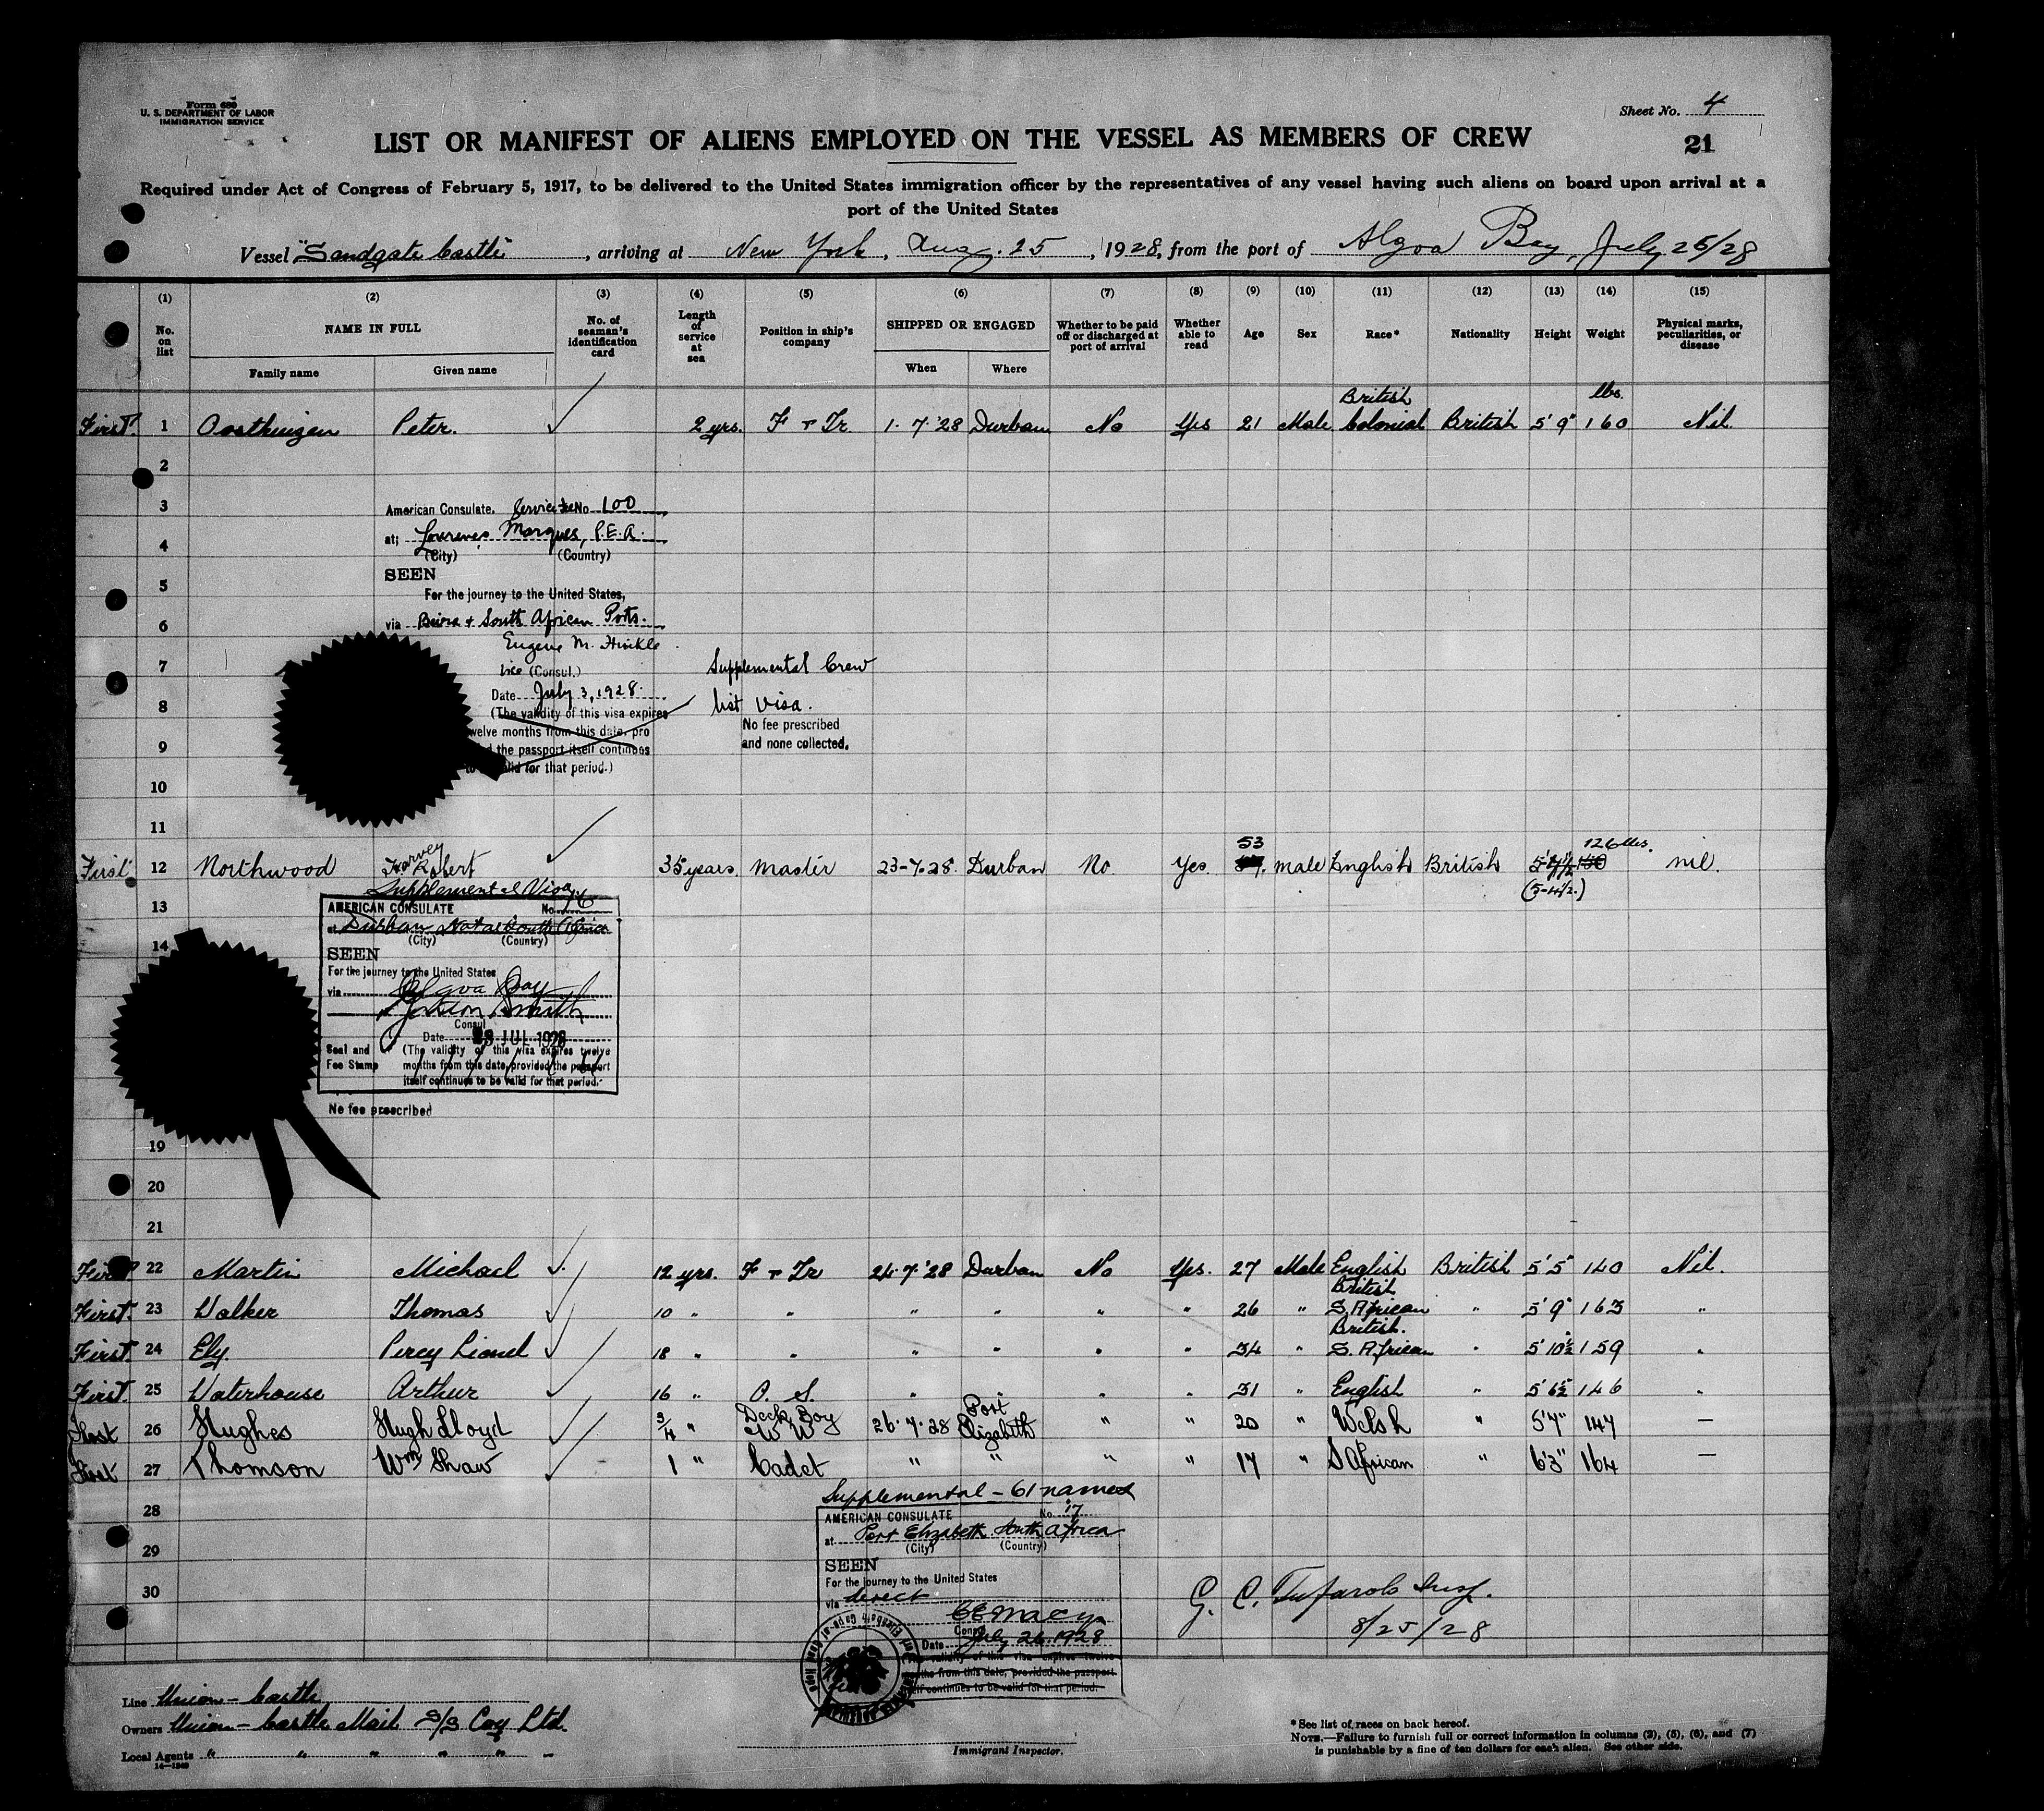 Form 689
U. S. DEPARTMENT OF LABOR
IMMIGRATION SERVICE
Sheet No. 4
21
LIST OR MANIFEST OF ALIENS EMPLOYED ON THE VESSEL AS MEMBERS OF CREW
Required under Act of Congress of February 5, 1917, to be delivered to the United States immigration officer by the representatives of any vessel having such aliens on board upon arrival at a
port of the United States
Vessel "Sandgate Castle", arriving at New York, Aug. 25, 1928, from the port of Algoa Bay, July 26/28
(1) (2) (3) (4) (5) (6) (7) (8) (9) (10) (11) (12) (13) (14) (15)
No. on list NAME IN FULL Family name Given name No. of seaman's identification card Length of service at sea Position in ship's company SHIPPED OR ENGAGED When Where Whether to be paid off or discharged at port of arrival Whether able to read Age Sex Race* Nationality Height Weight Physical marks, peculiarities, or disease
First. 1 Oosthuizen Peter. 2 yrs. F & Tr 1.7.'28 Durban No Yes 21 Male British Colonial British 5'9" lbs. 160 Nil.
2
3
American Consulate. Service No 100
4
at; Lourenço Marques, P.E.A.
(City) (Country)
SEEN
5
For the journey to the United States,
6
via Beira & South African Ports.
Eugene M. Hinkle
7
Vice (Consul.)
Supplemental Crew
Date July 3, 1928.
8
list Visa.
(The validity of this visa expires
No fee prescribed
welve months from this date, pro
9
d the passport itself continues
and none collected.
lid for that period.)
10
11
First 12 Northwood Harvey Robert 35 years Master 23-7-28 Durban No Yes. 53 male English British 5-4½ 126 lbs. 150 nil.
(5-4½.)
Supplemental Visa
13
AMERICAN CONSULATE No. 76
at Durban Natal South Africa
(City) (Country)
14
SEEN
For the journey to the United States
via Algoa Bay
Consul
Date 23 JUL 1928
Seal and Fee Stamp
(The validity of this visa expires twelve
months from this date, provided the passport
itself continues to be valid for that period.
No fee prescribed
19
20
21
First 22 Martin Michael 12 yrs. F & Tr 24.7.'28 Durban No Yes. 27 Male English British 5'5 140 Nil.
First. 23 Walker Thomas 10 " " " " " " 26 " British S. African " 5'9" 163 "
First. 24 Ely. Percy Lionel 18 " " " " " " 34 " British. S. African " 5'10½ 159 "
First. 25 Waterhouse Arthur 16 " O. S. " " " " 31 " English " 5'6½ 146 "
First 26 Hughes Hugh Lloyd 3/4 " Deck Boy 26.7.28 Port Elizabeth " " 20 " Welsh " 5'7" 147 —
First 27 Thomson Wm Shaw 1 " Cadet " " " " 17 " S African " 6'3" 164 —
Supplemental - 61 names
28
AMERICAN CONSULATE No. 17
at Port Elizabeth South Africa
(City) (Country)
29
SEEN
For the journey to the United States
30
via direct
Consul
Date July 26. 1928
(The validity of this visa expires twelve
months from this date, provided the passport
itself continues to be valid for that period.
8/25/28
Line Union-Castle
Owners Union-Castle Mail S/S Coy Ltd.
Local Agents " " " " " "
14—1949
Immigrant Inspector.
*See list of races on back hereof.
NOTE.—Failure to furnish full or correct information in columns (2), (5), (6), and (7)
is punishable by a fine of ten dollars for each alien. See other side.